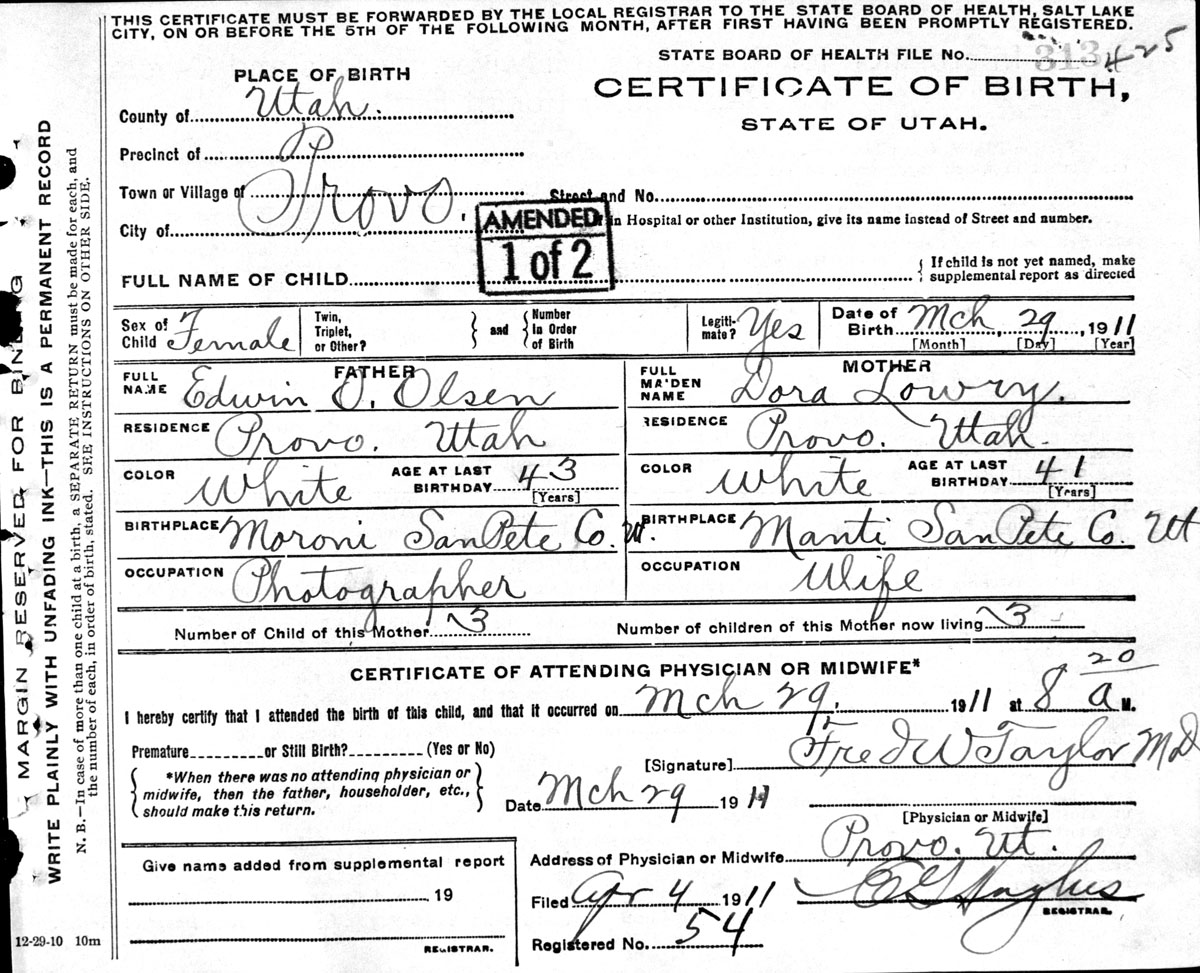 THIS CERTIFICATE MUST BE FORWARDED BY THE LOCAL REGISTRAR TO THE STATE BOARD OF HEALTH, SALT LAKE
CITY, ON OR BEFORE THE 5TH OF THE FOLLOWING MONTH, AFTER FIRST HAVING BEEN PROMPTLY REGISTERED.
STATE BOARD OF HEALTH FILE No. 313 425
PLACE OF BIRTH
CERTIFICATE OF BIRTH,
STATE OF UTAH.
County of Utah.
Precinct of
Town or Village of Provo.
Street and No.
City of
in Hospital or other Institution, give its name instead of Street and number.
AMENDED
1 of 2
FULL NAME OF CHILD
If child is not yet named, make
supplemental report as directed
Sex of Child Female
Twin, Triplet, or Other?
and
Number In Order of Birth
Legiti-mate? Yes
Date of Birth Mch, 29, 1911
[Month] [Day] [Year]
FATHER
FULL NAME Edwin O. Olsen
RESIDENCE Provo. Utah
COLOR White AGE AT LAST BIRTHDAY 43 [Years]
BIRTHPLACE Moroni SanPete Co. Ut.
OCCUPATION Photographer
MOTHER
FULL MAIDEN NAME Dora Lowry.
RESIDENCE Provo. Utah.
COLOR White AGE AT LAST BIRTHDAY 41 [Years]
BIRTHPLACE Manti SanPete Co. Ut
OCCUPATION Wife
Number of Child of this Mother 3
Number of children of this Mother now living 3
CERTIFICATE OF ATTENDING PHYSICIAN OR MIDWIFE*
I hereby certify that I attended the birth of this child, and that it occurred on Mch 29, 1911 at 8 20 a M.
Premature or Still Birth? (Yes or No)
*When there was no attending physician or
midwife, then the father, householder, etc.,
should make this return.
[Signature] Fred W Taylor MD
Date Mch 29 1911
[Physician or Midwife]
Give name added from supplemental report
19
REGISTRAR.
Address of Physician or Midwife Provo. Ut.
Filed Apr 4 1911
REGISTRAR.
Registered No. 54
12-29-10 10m
MARGIN RESERVED FOR BINDING
WRITE PLAINLY WITH UNFADING INK—THIS IS A PERMANENT RECORD
N. B.—In case of more than one child at a birth, a SEPARATE RETURN must be made for each, and
the number of each, in order of birth, stated. SEE INSTRUCTIONS ON OTHER SIDE.